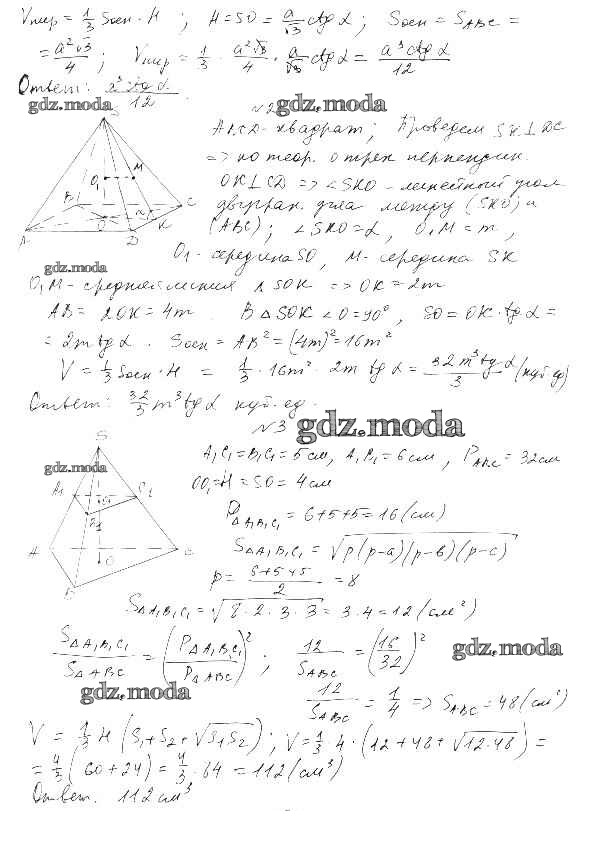 Vпир = 1/3 Sосн · H ; H = SO = a/√3 ctg α ; Sосн = S ABC =
= a²√3/4 ; Vпир = 1/3 · a²√3/4 · a/√3 ctg α = a³ctg α/12
Ответ: a³ctg α/12
gdz.moda
№2
gdz.moda
ABCD - квадрат; Проведем SK ⊥ DC
=> по теор. о трех перпендик.
OK ⊥ CD => ∠SKO - линейный угол
двугран. угла между (SKO) и
(ABC) ; ∠SKO = α, O₁M = m ,
S
O₁
M
B
C
A
O
α
K
D
O₁ - середина SO, M - середина SK
gdz.moda
O₁M - средняя линия Δ SOK => OK = 2m
AB = 2OK = 4m. В Δ SOK ∠O = 90°, SO = OK · tg α =
= 2m tg α. Sосн = AB² = (4m)² = 16m²
V = 1/3 Sосн · H = 1/3 · 16m² · 2m tg α = 32m³tg α/3 (куб ед)
Ответ: 32/3 m³tg α куб. ед.
№3
gdz.moda
S
gdz.moda
A₁
B₁
A
O
B
A₁C₁ = B₁C₁ = 5 см, A₁B₁ = 6 см , P ABC = 32 см
OO₁ = H = SO = 4 см
P ΔA₁B₁C₁ = 6+5+5 = 16 (см)
S ΔA₁B₁C₁ = √p(p-a)(p-b)(p-c)
p = 6+5+5/2 = 8
S ΔA₁B₁C₁ = √8·2·3·3 = 3·4 = 12 (см²)
S ΔA₁B₁C₁/S ΔABC = (P ΔA₁B₁C₁/P ΔABC)² ; 12/S ABC = (16/32)²
gdz.moda
gdz.moda
12/S ABC = 1/4 => S ABC = 48 (см²)
V = 1/3 H (S₁+S₂+√S₁S₂) ; V = 1/3 · 4 · (12+48+√12·48) =
= 4/3 (60+24) = 4/3 · 84 = 112 (см³)
Ответ. 112 см³